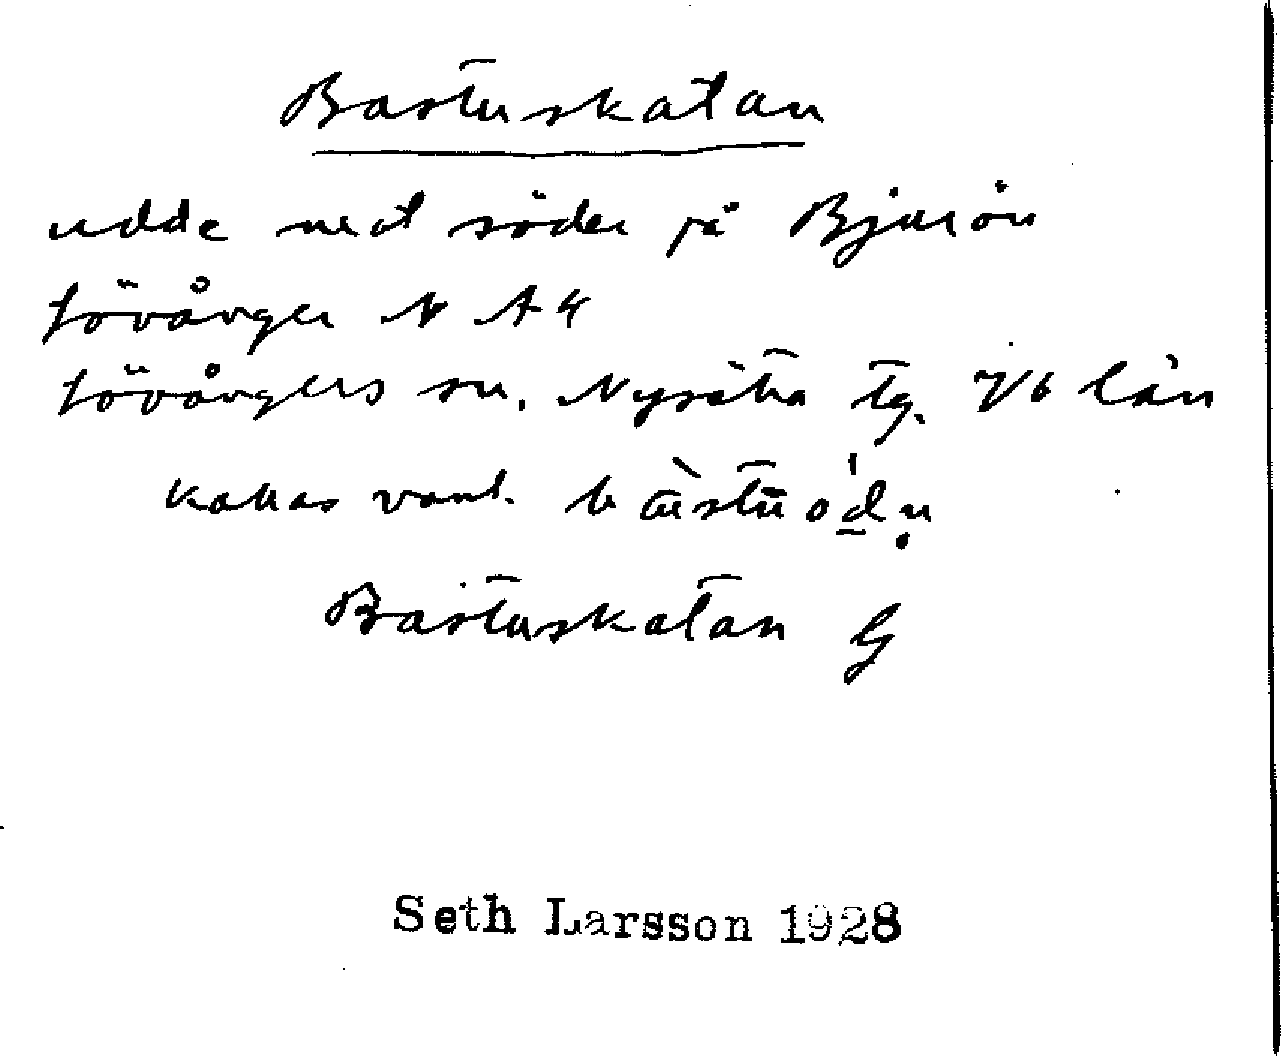 Bastuskatan
udde mot söder på Bjurön
Lövånger N A 4
Lövångers sn. Nysätra tg. Vb län
kallas vanl.
Bastuskatan G
Seth Larsson 1928